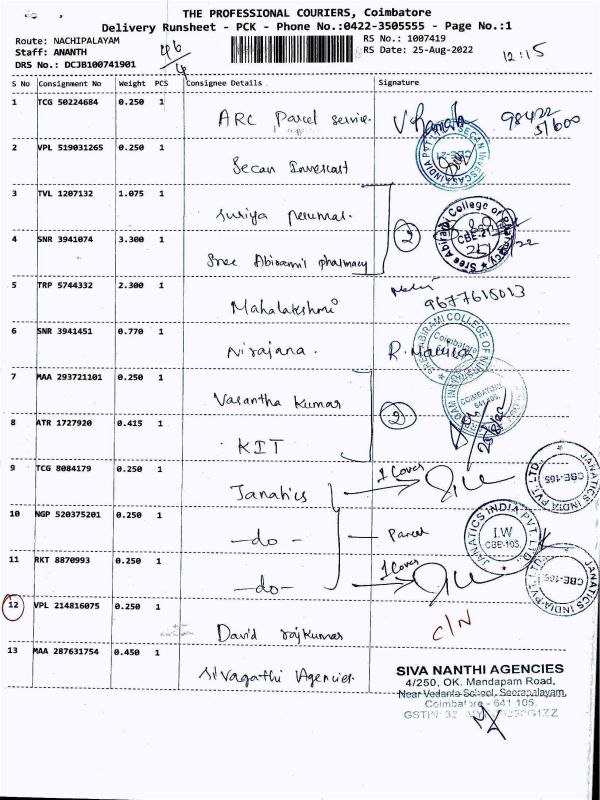 THE PROFESSIONAL COURIERS, Coimbatore
Delivery Runsheet - PCK - Phone No.:0422-3505555 - Page No.:1
Route: NACHIPALAYAM
RS No.: 1007419
Staff: ANANTH
RS Date: 25-Aug-2022
12:15
DRS No.: DCJB100741901
S No Consignment No Weight PCS Consignee Details Signature
1 TCG 50224684 0.250 1 ARC Parcel service.
98422
51600
2 VPL 519031265 0.250 1 Secan Invescast
3 TVL 1207132 1.075 1 Suriya Perumal.
4 SNR 3941074 3.300 1 Sree Abirami pharmacy
2
Sree Abirami College of Pharmacy
CBE-21
5 TRP 5744332 2.300 1 Mahalakshmi
9677615013
6 SNR 3941451 0.770 1 Nirajana.
7 MAA 293721101 0.250 1 Vasantha Kumar
COIMBATORE
641 105.
8 ATR 1727920 0.415 1 KIT
2
25/8/22
9 TCG 8084179 0.250 1 Janatics
1 Cover
JANATICS INDIA PVT. LTD.
CBE-105
10 NGP 520375201 0.250 1 -do-
Parcel
JANATICS INDIA PVT. LTD.
I.W
CBE-105.
11 RKT 8870993 0.250 1 -do-
1 Cover
JANATICS INDIA PVT. LTD.
CBE-105
12 VPL 214816075 0.250 1 David rajkumar
C/N
13 MAA 287631754 0.450 1 Sivagathi Agencies.
SIVA NANTHI AGENCIES
4/250, OK. Mandapam Road,
Near Vedanta School, Seerapalayam,
Coimbatore - 641 105.
GSTIN: 33